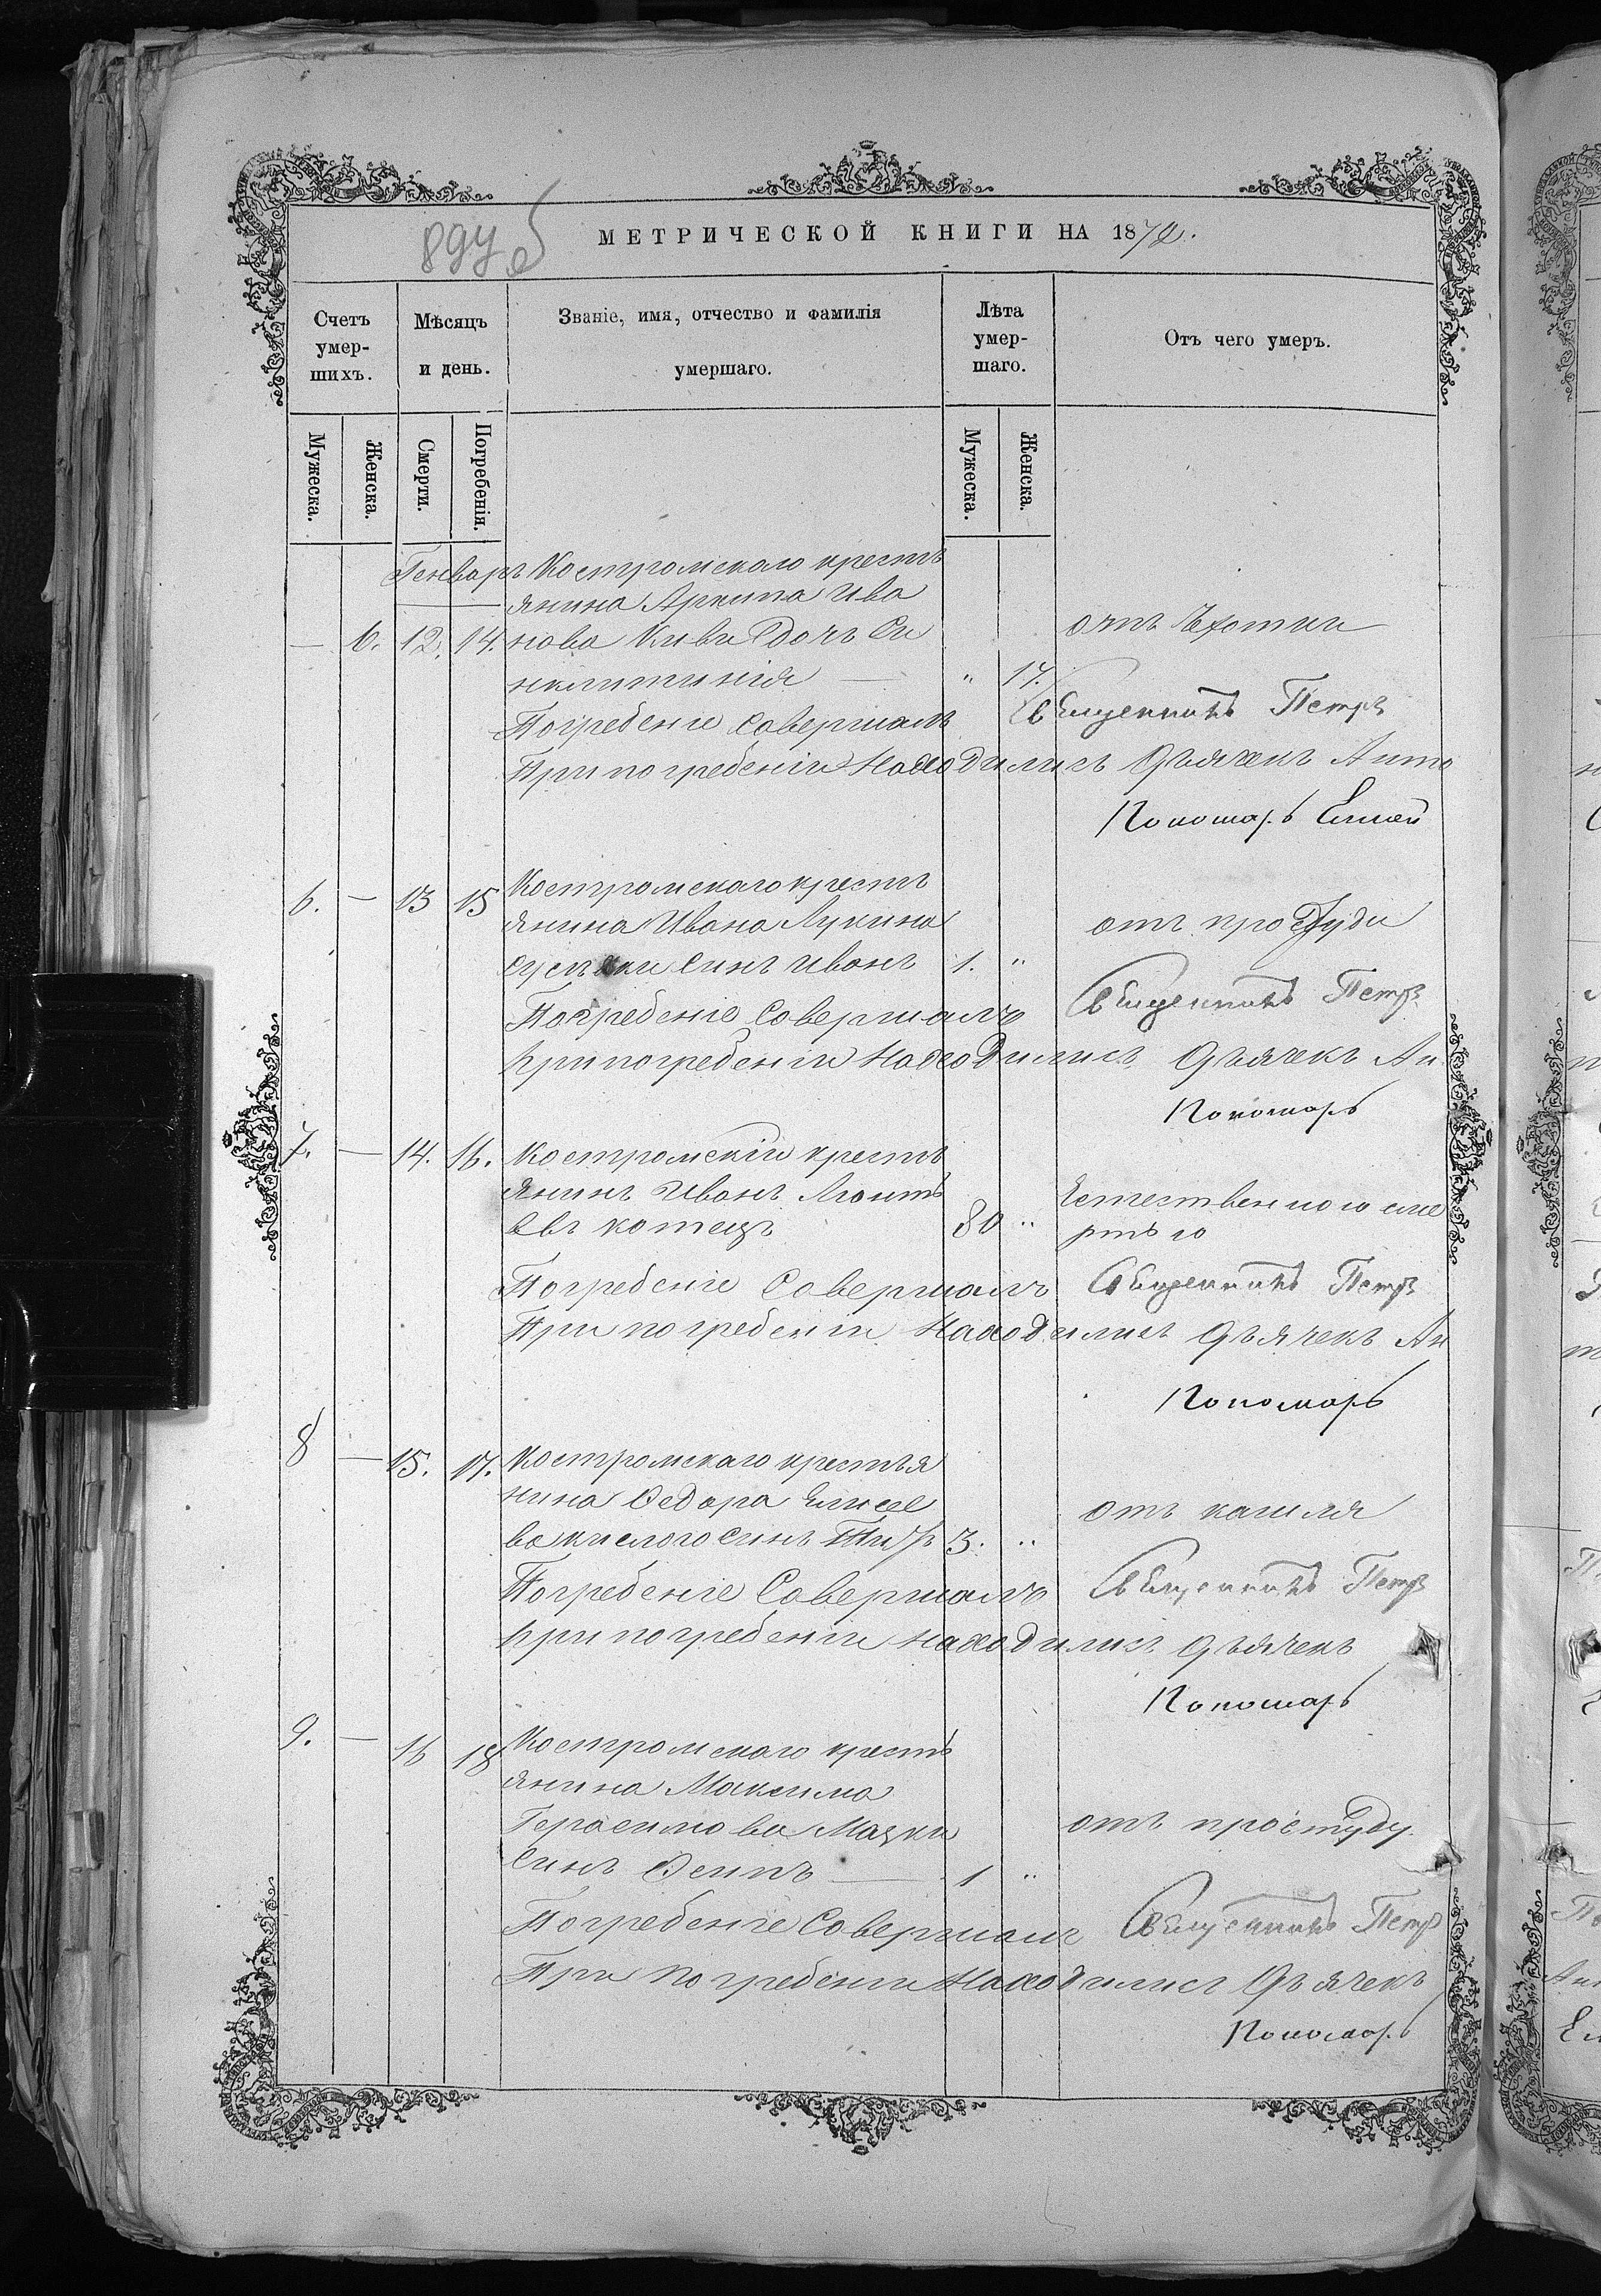 МЕТРИЧЕСКОЙ КНИГИ НА 187
Счетъ умер-шихъ.
Мѣсяцъ и день.
Званіе, имя, отчество и фамилія умершаго.
Лѣта умер-шаго.
Отъ чего умеръ.
Мужеска. Женска. Смерти. Погребенія. Мужеска. Женска.
Генваръ Костромскаго кресть
янина Архипа Ива
— 6. 12. 14. нова дочъ Си отъ
нклитикія — " 17.
Погребеніе совершалъ Священникъ Петръ
При погребеніи находились Дьячекъ Анто
Пономарь
6. — 13 15 Костромскаго кресть
янина Ивана Лукина отъ простуди
синъ Иванъ 1. "
Погребеніе Совершалъ Священникъ Петръ
при погребеніи находились Дьячекъ Ан
Пономарь
7. — 14. 16. Костромскій кресть
янинъ Иванъ Леонтъ Естественною сме
евъ котецъ 80 " ртью
Погребеніе Совершалъ Священникъ Петръ
При погребеніи находились Дьячекъ Ан
Пономарь
8 — 15. 17. Костромскаго крестья
нина Федора Елисе отъ кашля
ва кислого синъ 3. "
Погребеніе Совершалъ Священникъ Петръ
при погребеніи находились Дьячекъ
Пономарь
9. — 16 18 Костромскаго кресть
янина Максима
Герасимова Мазки отъ простуду
Синъ Осипъ — 1 "
Погребеніе Совершалъ Священникъ Петр
При погребеніи находились Дьячекъ
Пономарь